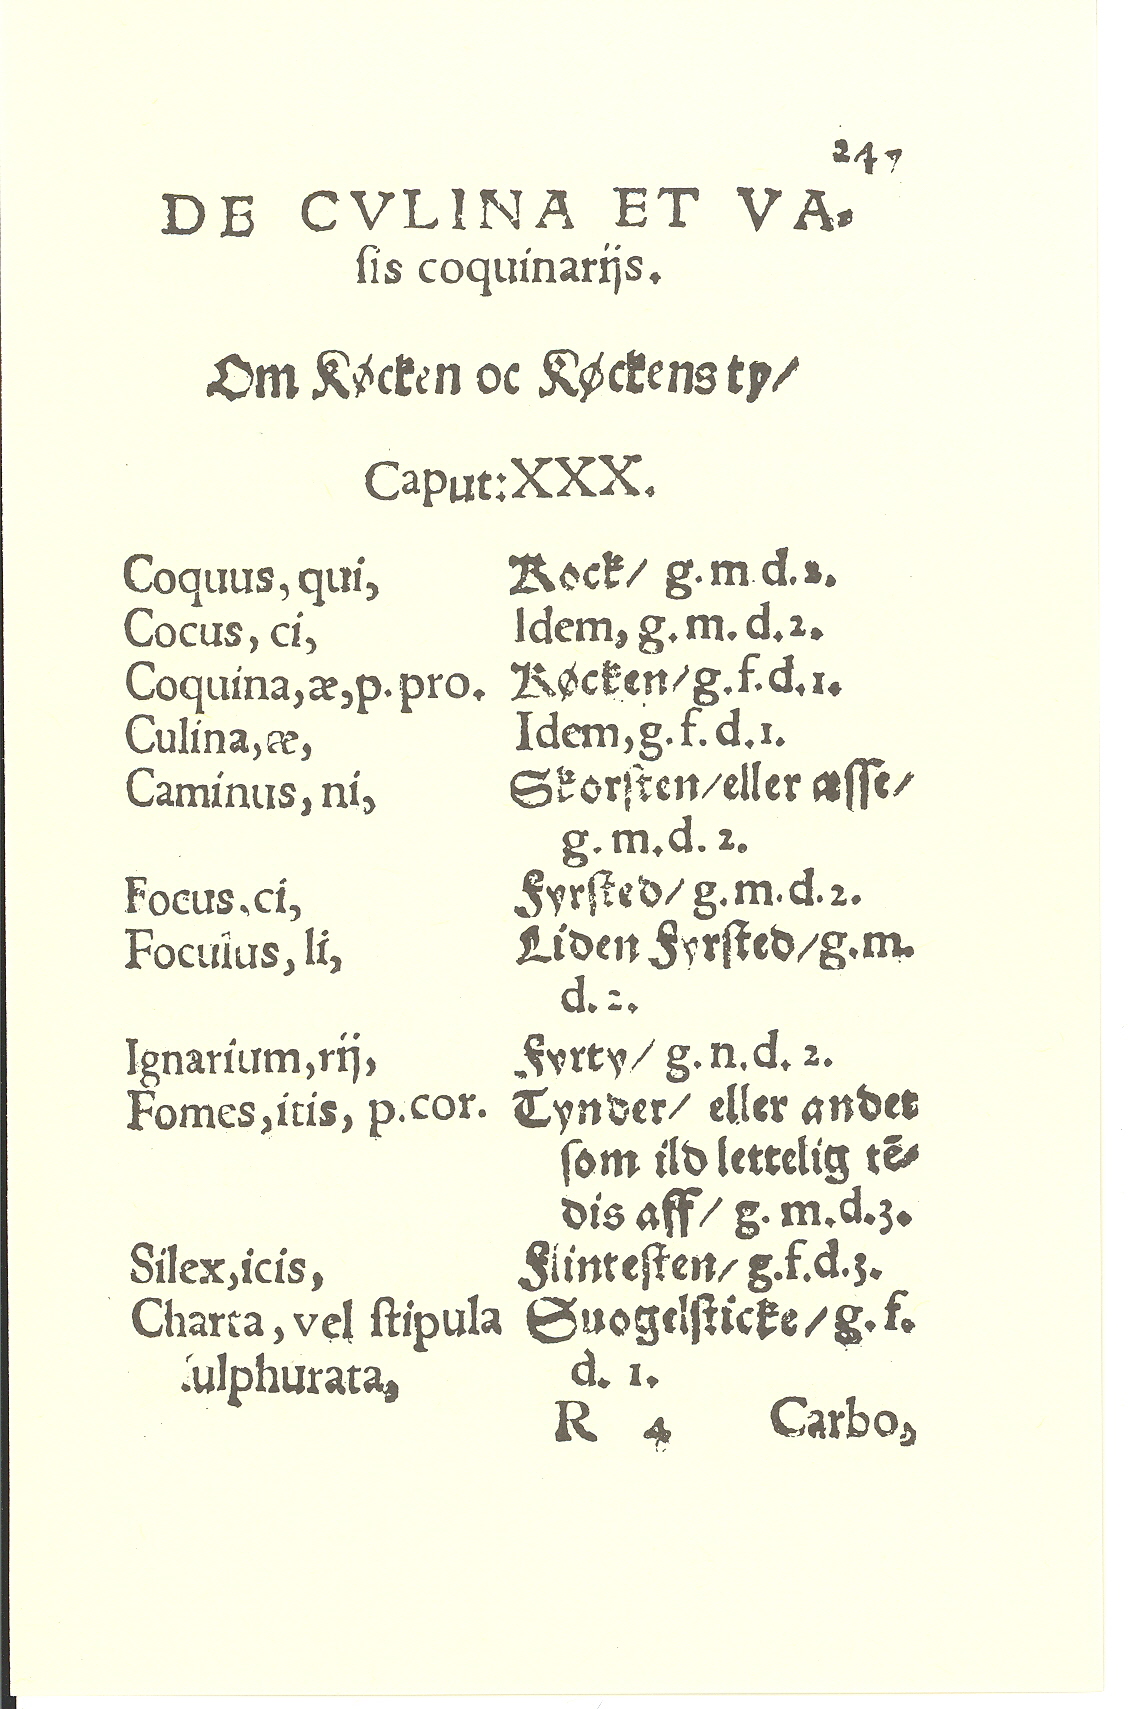 247
DE CVLINA ET VA-
ſis coquinarijs.
Om Køcken oc Køckens ty/
Caput: XXX.
Coquus, qui, Kock/ g. m. d. 2.
Cocus, ci, Idem, g. m. d. 2.
Coquina, æ, p. pro. Køcken/ g. f. d. 1.
Culina, æ, Idem, g. f. d. 1.
Caminus, ni, Skorſten/ eller æſſe/
g. m. d. 2.
Focus, ci, Fyrſted/ g. m. d. 2.
Foculus, li, Liden Fyrſted/ g. m.
d. 2.
Ignarium, rij, Fyrty/ g. n. d. 2.
Fomes, itis, p. cor. Tynder/ eller andet
ſom ild lettelig tē-
dis aff/ g. m. d. 3.
Silex, icis, Flinteſten/ g. f. d. 3.
Charta, vel ſtipula Suogelſticke/ g. f.
ſulphurata, d. 1.
R 4 Carbo,